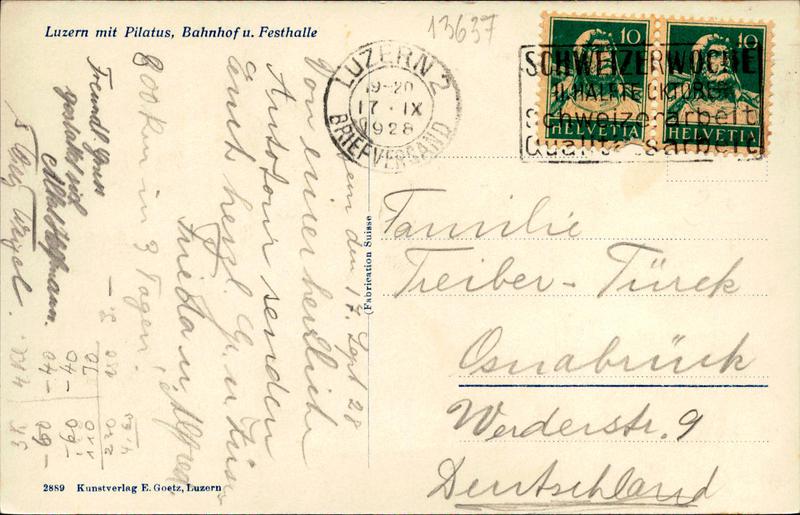 Luzern mit Pilatus, Bahnhof u. Festhalle
13637
LUZERN 2
19-20
17·IX
1928
BRIEFVERSAND
10 10
HELVETIA HELVETIA
SCHWEIZERWOCHE
II. HÄLFTE OKTOBER
Schweizerarbeit
Qualitätsarbeit
den 17. Sept 28
Von einer herrlichen
Autotour senden
auch herzl. Gr. u.
Frieda u. Alfred.
800 km in 3 Tagen!
Freundl. Gruss
(Fabrication Suisse)
Familie
Treiber-Türck
Osnabrück
Werderstr. 9
Deutschland
2889 Kunstverlag E. Goetz, Luzern